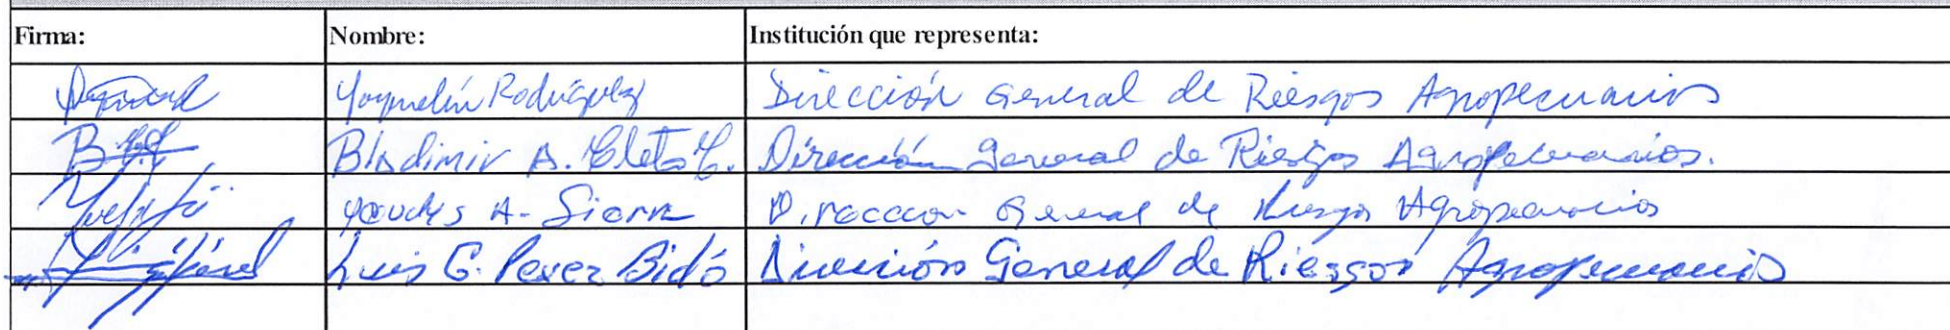 Firma: Nombre: Institución que representa:
Yoquelín Rodríguez Dirección General de Riesgos Agropecuarios
Bladimir A. Cleto C. Dirección General de Riesgos Agropecuarios.
A. Sierra Dirección General de Riesgos Agropecuarios
Luis G. Perez Bidó Dirección General de Riesgos Agropecuarios